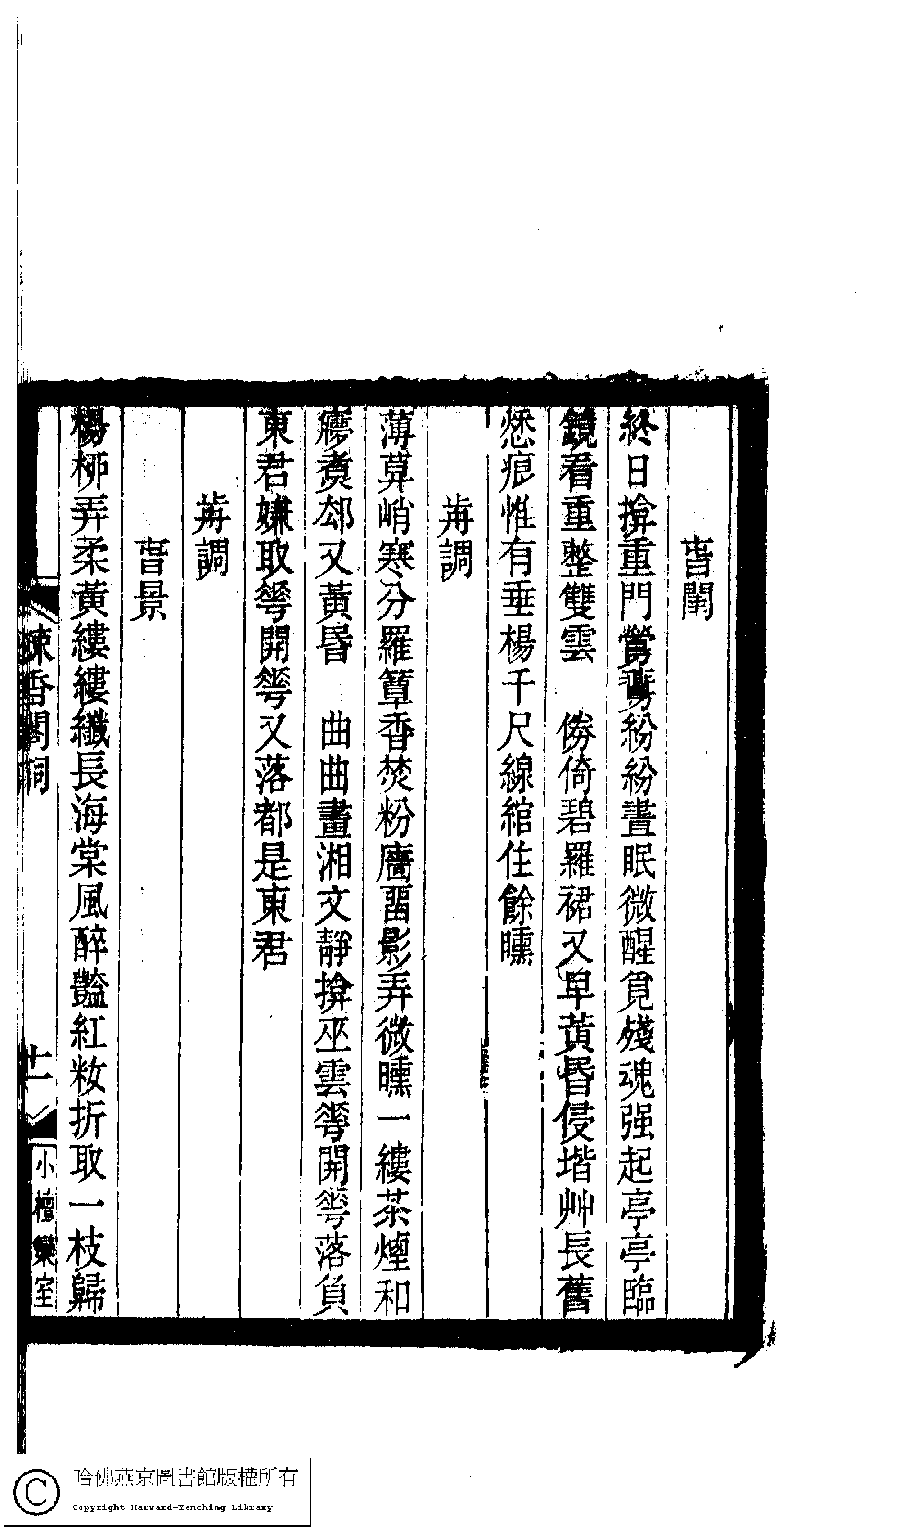 旾閨
終日揜重門鶯夢紛紛晝眠微醒覓殘魂强起亭亭臨
鏡看重整雙雲　傍倚碧羅裙又早黃昬侵堦艸長舊
愁痕惟有垂楊千尺線綰住餘曛
苒調
薄莫峭寒分羅簟香焚粉廧畱影弄微曛一縷茶煙和
㝱煑郄又黃昬　曲曲畫湘文靜揜巫雲蕚開蕚落負
東君嫌取蕚開蕚又落都是東君
苒調
旾景
楊桺弄柔黃縷縷纖長海棠風醉豔紅籹折取一枝歸
香閣詞
十一
小檀欒室
哈佛燕京圖書館版權所有
Copyright Harvard-Yenching Library